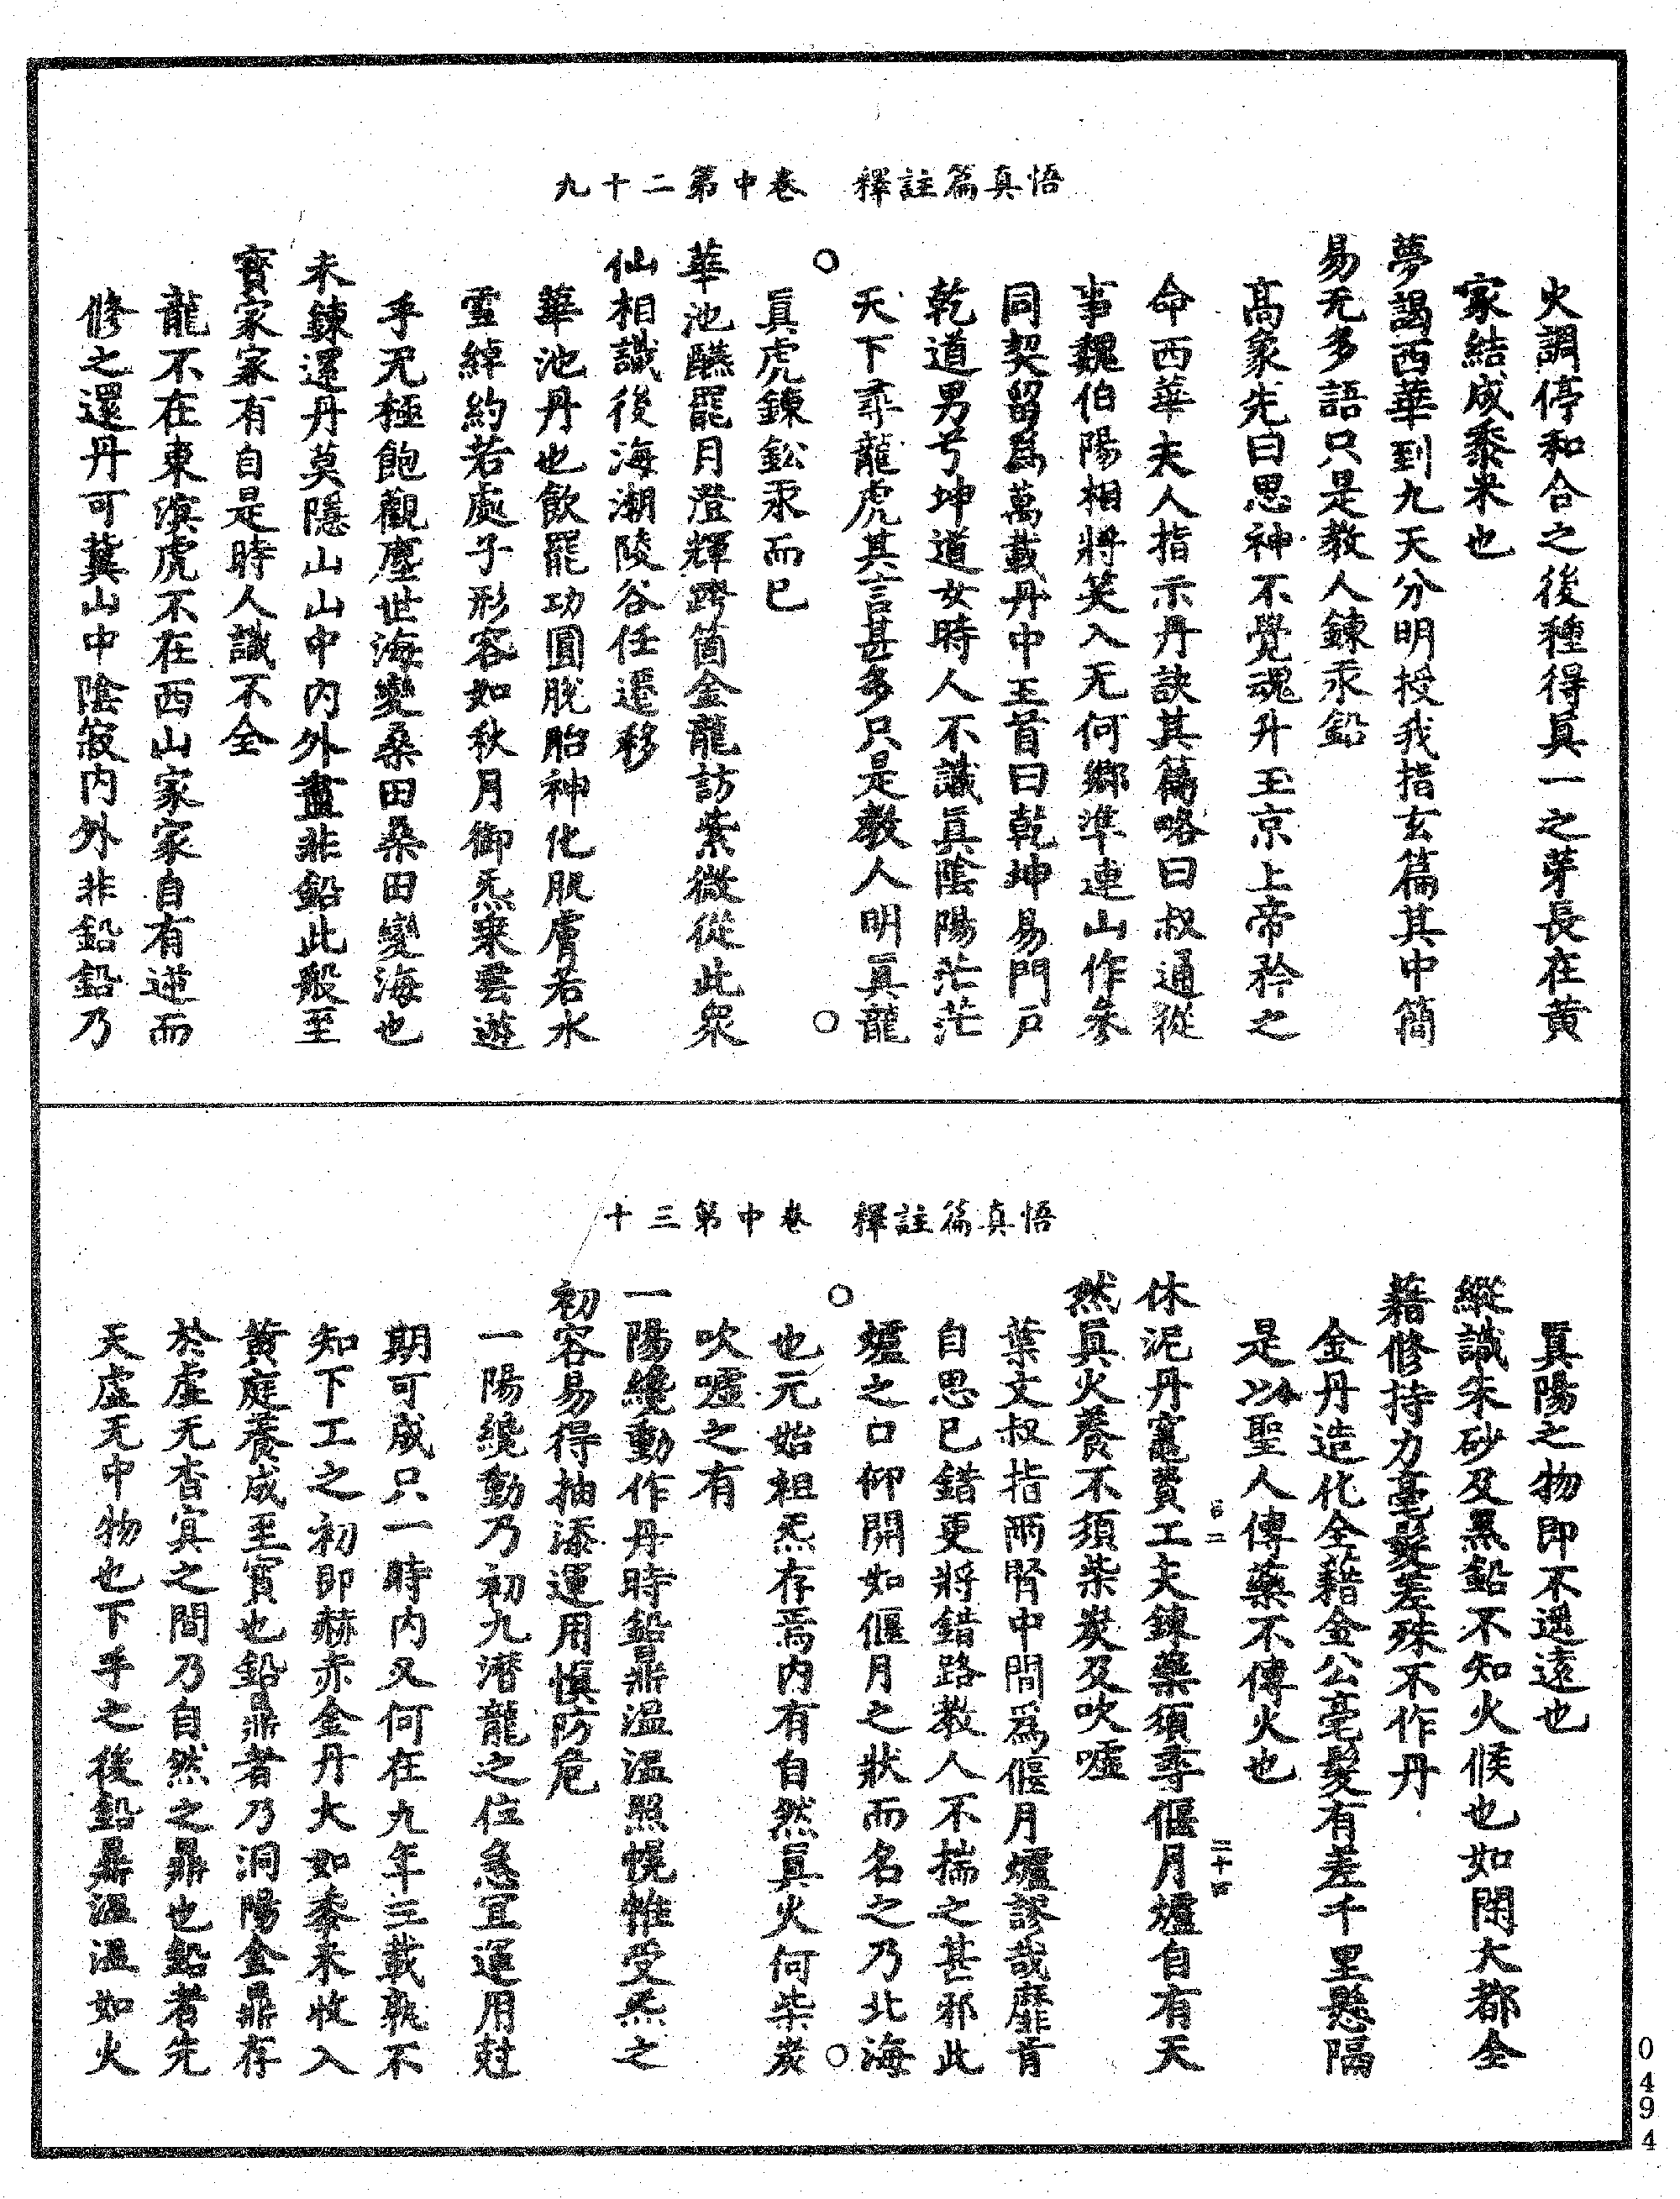 悟真篇註釋　卷中第二十九
火調停和合之後種得眞一之芽長在黃
家結成黍米也
夢謁西華到九天分明授我指玄篇其中簡
易无多語只是教人鍊汞鉛
高象先曰思神不覺魂升玉京上帝矜之
命西華夫人指示丹訣其篇略曰叔通從
事魏伯陽相將笑入无何鄉準連山作參
同契留爲萬載丹中王首曰乾坤易門戶
乾道男兮坤道女時人不識眞陰陽茫茫
天下尋龍虎其言甚多只是教人明眞龍
眞虎鍊鈆汞而已
華池讌罷月澄輝跨箇金龍訪紫微從此衆
仙相識後海潮陵谷任遷移
華池丹也飲罷功圓脫胎神化肌膚若水
雪綽約若處子形容如秋月御炁乘雲遊
乎无極飽觀塵世海變桑田桑田變海也
未鍊還丹莫隱山山中內外盡非鉛此般至
寶家家有自是時人識不全
龍不在東溟虎不在西山家家自有逆而
修之還丹可冀山中陰寂內外非鉛鉛乃
悟真篇註釋　卷中第三十
眞陽之物即不遥遠也
縱識朱砂及黑鉛不知火候也如閑大都全
藉修持力毫髮差殊不作丹
金丹造化全藉金公毫髮有差千里懸隔
是以聖人傳藥不傳火也
休泥丹竈費工夫鍊藥須尋偃月爐自有天
然眞火養不須柴炭及吹噓
葉文叔指兩腎中間爲偃月爐謬哉靡肯
自思已錯更將錯路教人不揣之甚邪此
爐之口仰開如偃月之狀而名之乃北海
也元始祖炁存焉內有自然眞火何柴炭
吹噓之有
一陽纔動作丹時鉛鼎溫溫照幌帷受炁之
初容易得抽添運用慎防危
一陽纔動乃初九潛龍之位急宜運用尅
期可成只一時內又何在九年三載孰不
知下工之初即赫赤金丹大如黍米收入
黃庭養成至寶也鉛鼎者乃洞陽金鼎存
於虛无杳冥之間乃自然之鼎也鉛者先
天虛无中物也下手之後鉛鼎溫溫如火
二十四
0494